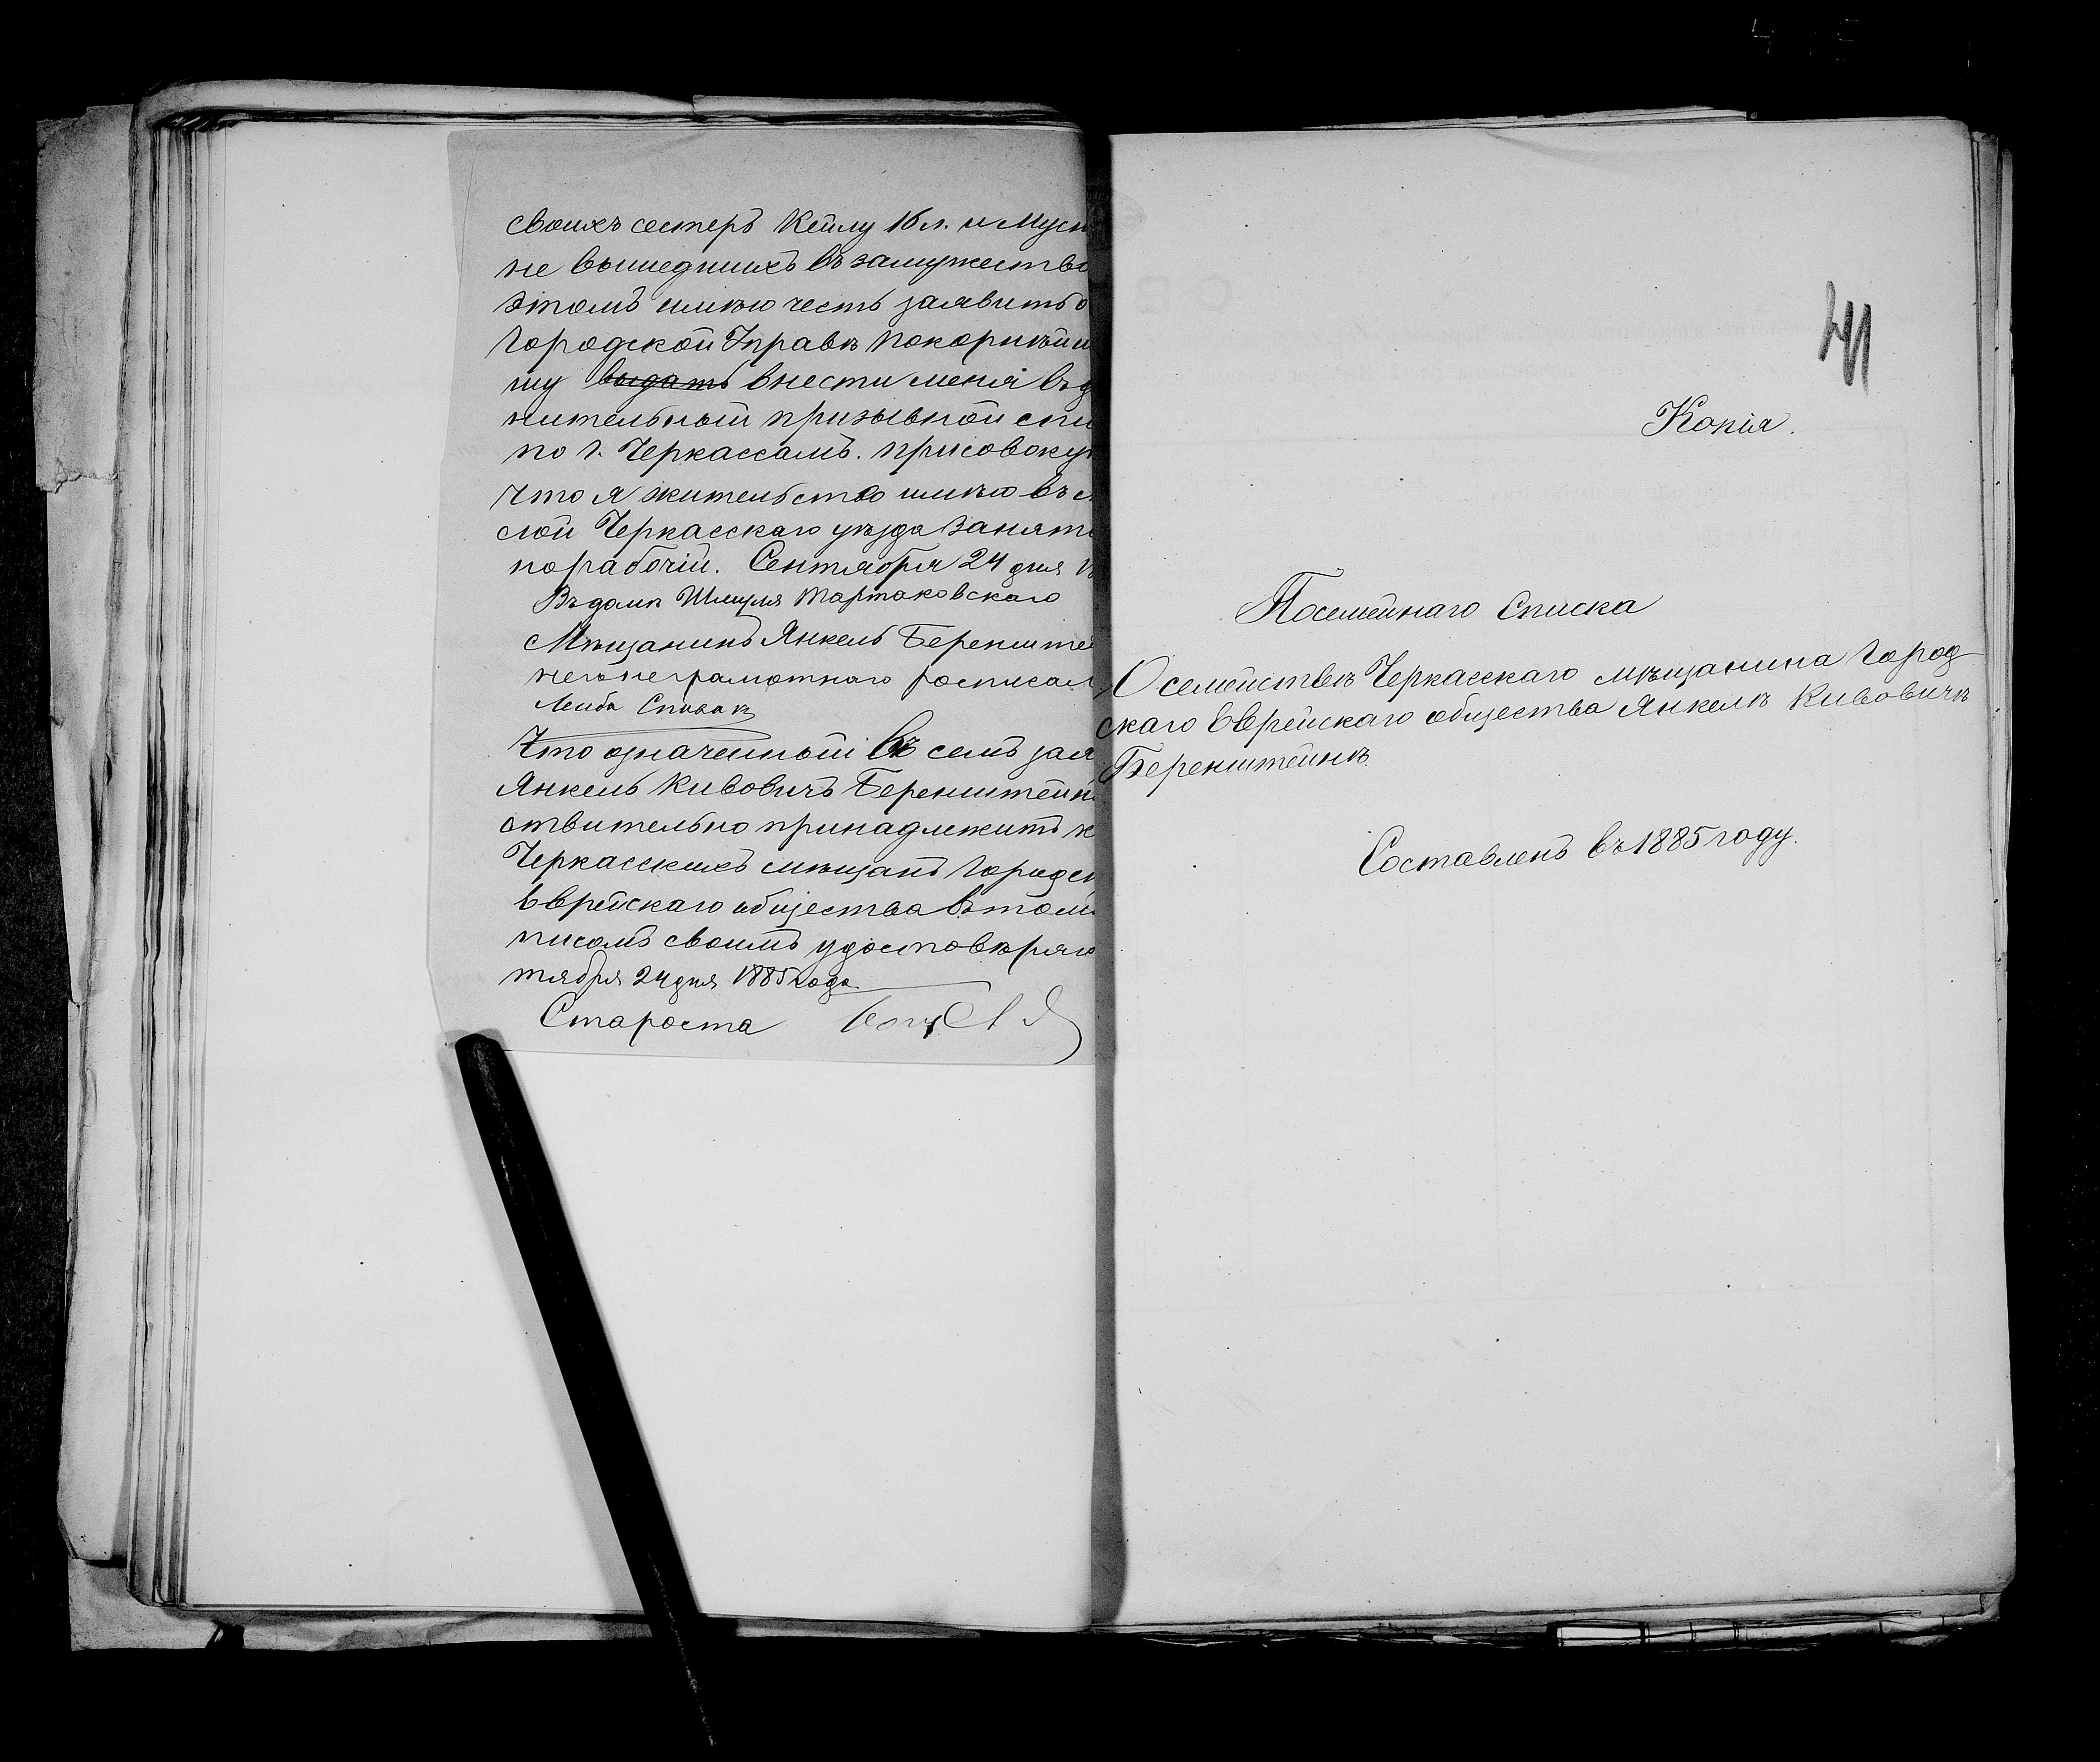 своихъ сестеръ Кейлу 16 л. и Мусю
не вышедшихъ въ замужество
этомъ имѣю честь заявить о
Городской Управѣ покорнѣйш
шу выдать внести меня въ д
нительный призывной спи
по г. Черкассамъ. присовокуп
что я жительство имѣю въ с.
слой Черкасскаго уѣзда занят
по рабочій. Сентября 24 дня
Въ домѣ Шмуля Тартаковскаго
Мѣщанинъ Янкель Беренште
него неграмотнаго росписал
Лейба Спивакъ
Что означенный въ семъ зая
Янкель Кивовичъ Беренштейнъ
ствительно принадлежитъ к
Черкасскихъ мѣщанъ Городск
Еврейскаго общества въ томъ
писомъ своимъ удостовѣряю
тября 24 дня 1885 года
Староста
41
Копія.
Посемейнаго Списка
О семействѣ Черкасскаго мѣщанина Город-
скаго Еврейскаго общества Янкелѣ Кивовичѣ
Беренштейнѣ.
Составленъ въ 1885 году.